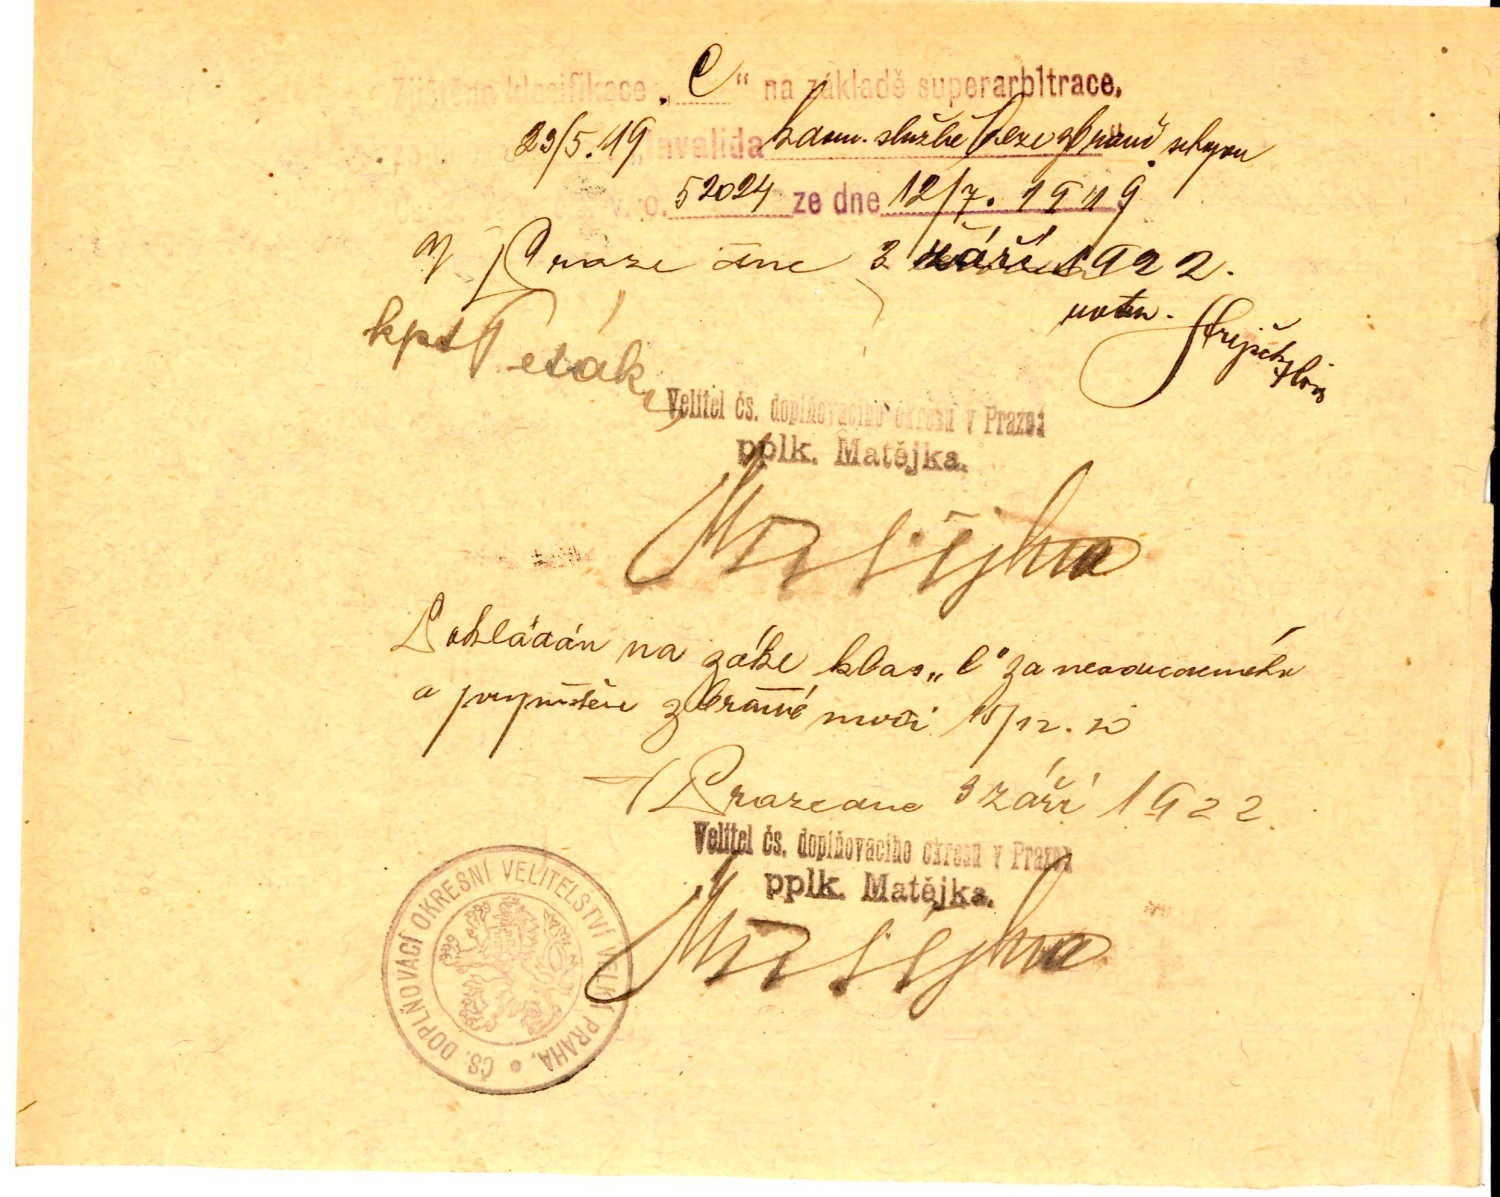 klasifikace „C“ na základě superarbitrace.
23/5.19 „Invalida službě beze zbraně schopen
v. o. 52024 ze dne 12/7. 1919
V Praze dne 3 září 1922.
kpt Tesák
Velitel čs. doplňovacího okresu v Praze:
pplk. Matějka.
Matějka
Pokládán na zákl klas „C“ za neodvedeného
a zbraně 10/12. 20
V Praze dne 3 září 1922
Velitel čs. doplňovacího okresu v Praze:
pplk. Matějka.
Matějka
ČS. DOPLŇOVACÍ OKRESNÍ VELITELSTVÍ VELKÁ PRAHA.